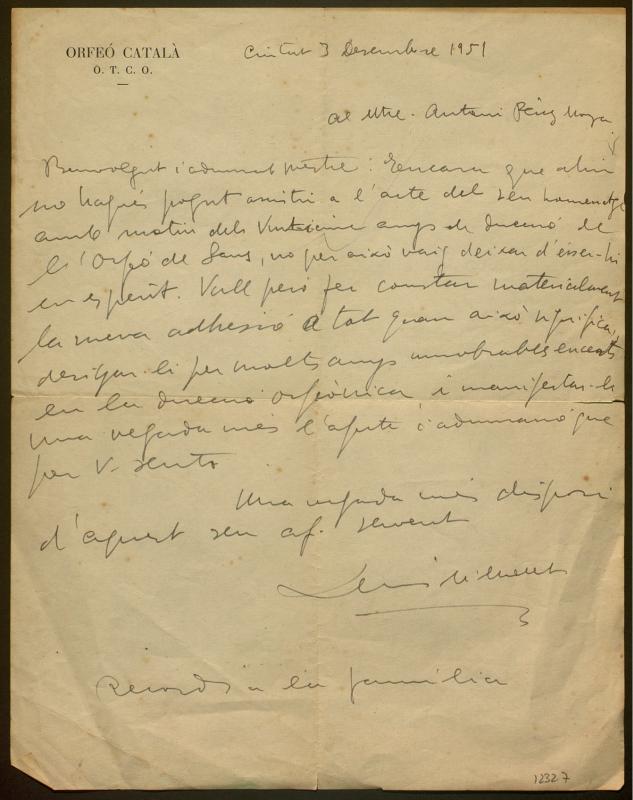 ORFEÓ CATALÀ
O. T. C. O.
Ciutat 3 Desembre 1951
al Mtre. Antoni Pérez Moya
Benvolgut i admirat mestre: Encara que ahir
no hagués pogut assistir a l'acte del seu homenatge
amb motiu dels anys de direcció de
l'Orfeó de Sans, no per això vaig deixar d'ésser-hi
en esperit. Vull però fer constar materialment
la meva adhesió a tot quan això significa,
desijar-li per molts anys innombrables encerts
en la direcció orfeònica i manifestar-li
una vegada més l'afecte i admiració que
per V. sento
Una vegada més disposi
d'aquest seu af. servent
Lluis Millet
Records a la família
12327